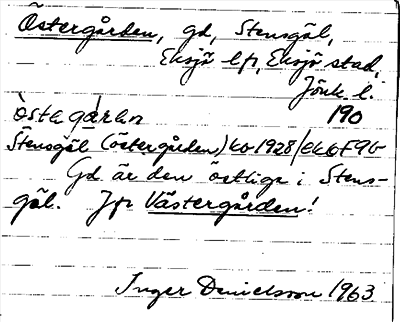 Östergården, gd, Stensgöl,
Eksjö lfs, Eksjö stad,
Jönk. l.
ò̀ste gárḷn 190
Stensgöl (östergården) ko 1928/ek 6F9G
Gd är den östliga i Stens-
göl. Jfr Västergården!
Inger Danielsson 1963